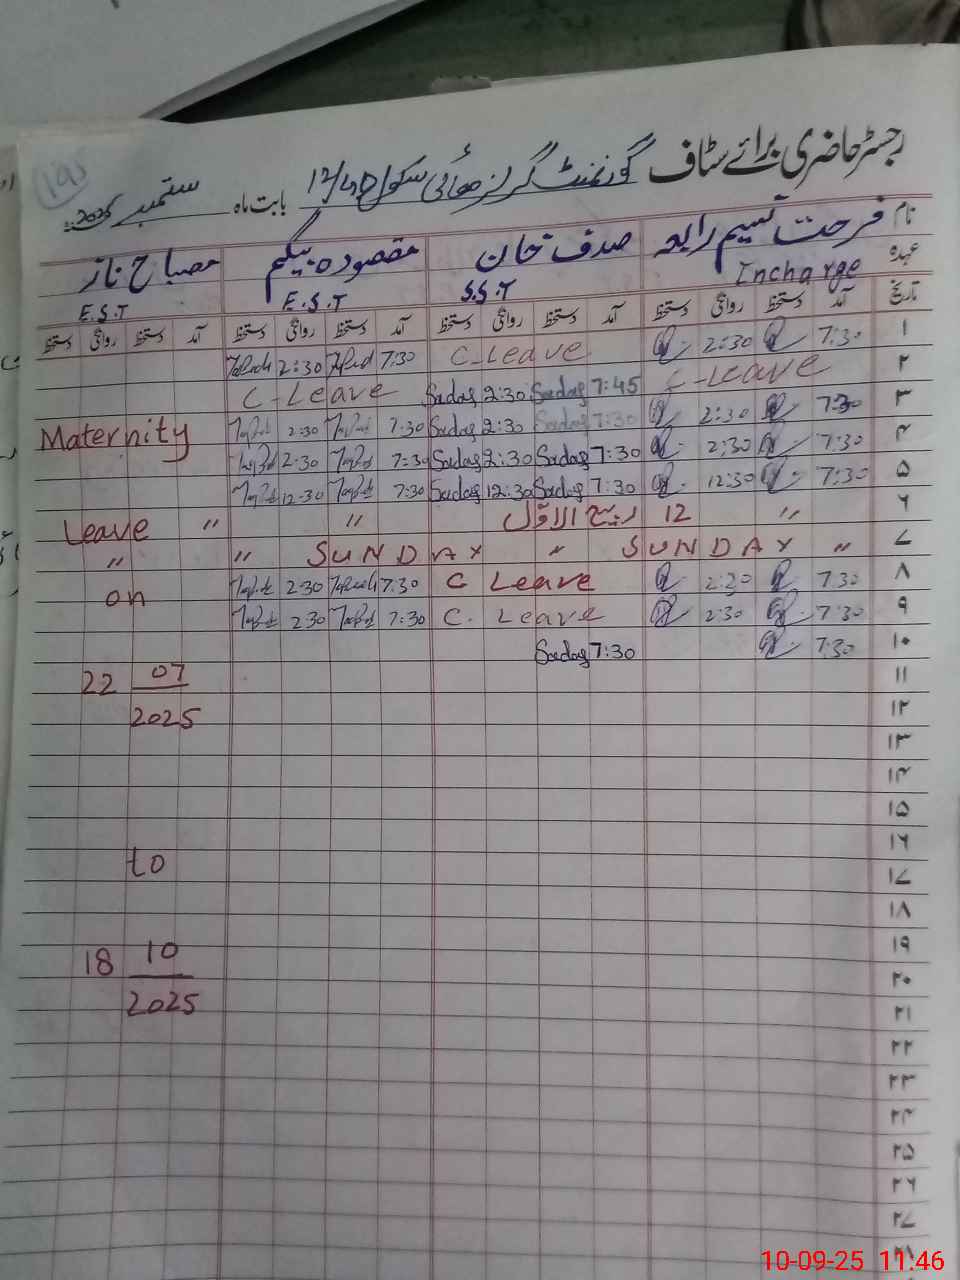 195
رجسٹر حاضری برائے سٹاف گورنمنٹ گرلز ھائی سکول 12/4D بابت ماہ ستمبر 2025
نام فرحت نسیم رابعہ صدف خان مقصودہ بیگم مصباح ناز
عہدہ Incharge S.S.T E.S.T E.S.T
تاریخ آمد دستخط روانگی دستخط آمد دستخط روانگی دستخط آمد دستخط روانگی دستخط آمد دستخط روانگی دستخط
۱ 7:30 2:30 C-Leave 7:30 2:30
۲ C-Leave 7:45 Sadaf 2:30 Sadaf C-Leave
۳ 7:30 2:30 7:30 Sadaf 2:30 Sadaf 7:30 2:30 Maternity
۴ 7:30 2:30 7:30 Sadaf 2:30 Sadaf 7:30 2:30
۵ 7:30 12:30 7:30 Sadaf 12:30 Sadaf 7:30 12:30
۶ 〃 12 ربیع الاوّل 〃 〃 Leave
۷ 〃 SUNDAY 〃 SUNDAY 〃 〃
۸ 7:30 2:30 C Leave 7:30 2:30 on
۹ 7:30 2:30 C. Leave 7:30 2:30
۱۰ 7:30 7:30 Sadaf
۱۱ 22 07
۱۲ 2025
۱۳
۱۴
۱۵
۱۶
۱۷ to
۱۸
۱۹
۲۰ 18 10
۲۱ 2025
۲۲
۲۳
۲۴
۲۵
۲۶
۲۷
۲۸
10-09-25 11:46